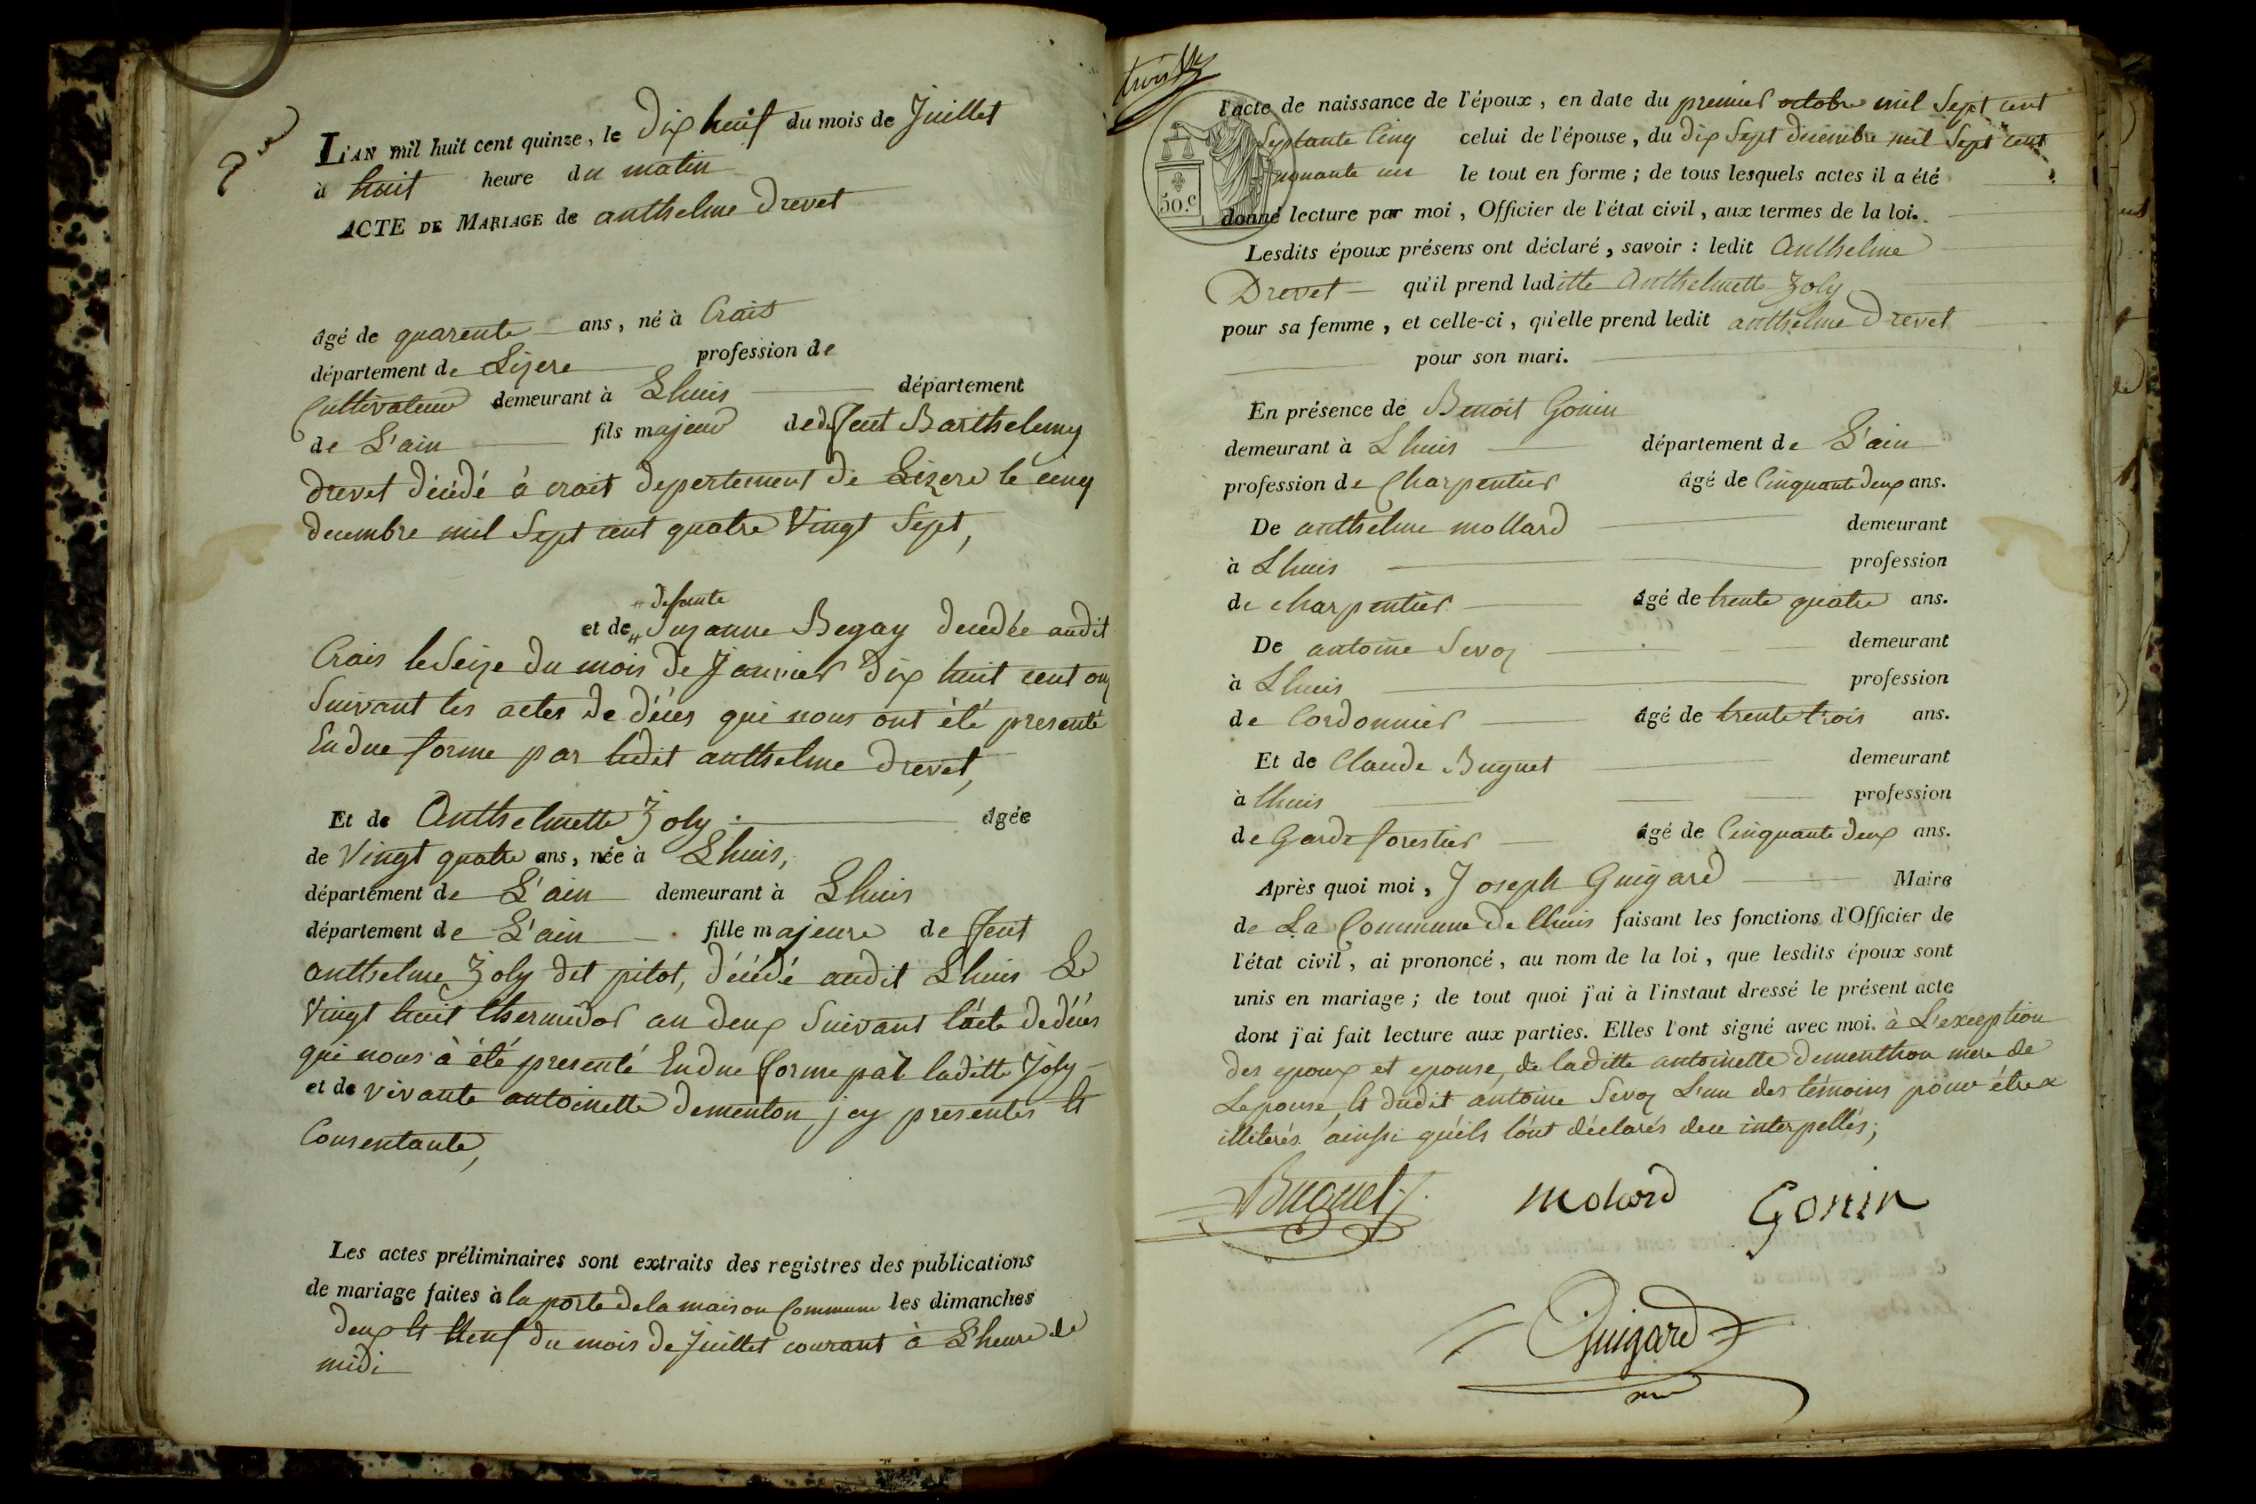 L'AN mil huit cent quinze, le Dix huit du mois de Juillet
à huit heure du matin
ACTE DE MARIAGE de anthelme Drevet
âgé de quarente ans, né à Crais
département de Lizere profession de
Cultivateur demeurant à Lhuis département
de L'ain fils majeur de deffeut Barthelemy
drevet décédé à crais departement de Lizere le cinq
decembre mil Sept cent quatre Vingt Sept,
defunte
et de Suzanne Begay decedée audit
Crais le Seize du mois de Janvier dix huit cent onz
Suivant les actes de décès qui nous ont été presenté
En due forme par ledit anthelme drevet,
Et de Anthelmette Joly agée
de Vingt quatre ans, née à Lhuis,
département de L'ain demeurant à Lhuis
département de L'ain fille majeure de feut
anthelme Joly dit pilot, décédé audit Lhuis Le
Vingt huit thermidor an deux Suivant l'acte de décès
qui nous à été presenté En due forme par laditte Joly
et de vivante antoinette dementon jcy presentes et
Consentante,
Les actes préliminaires sont extraits des registres des publications
de mariage faites à la porte de la maison Commune les dimanches
deux et Neuf du mois de Juillet courant à L'heure de
midi
trois
l'acte de naissance de l'époux, en date du premier octobre mil Sept cent
Septante Cinq celui de l'épouse, du dix Sept decembre mil Sept cent
nonante un le tout en forme; de tous lesquels actes il a été
50.c
donné lecture par moi, Officier de l'état civil, aux termes de la loi.
Lesdits époux présens ont déclaré, savoir: ledit Anthelme
Drevet qu'il prend laditte Anthelmette Joly
pour sa femme, et celle-ci, qu'elle prend ledit anthelme Drevet
pour son mari.
En présence de Benoit Gonin
demeurant à Lhuis département de L'ain
profession de Charpentier âgé de Cinquante deux ans.
De anthelme mollard demeurant
à Lhuis profession
de charpentier âgé de trente quatre ans.
De antoine Sevoz demeurant
à Lhuis profession
de Cordonnier âgé de trente trois ans.
Et de Claude Buguet demeurant
à lhuis profession
de Garde forestier âgé de Cinquante deux ans.
Après quoi moi, Joseph Guigard Maire
de La Commune de lhuis faisant les fonctions d'Officier de
l'état civil, ai prononcé, au nom de la loi, que lesdits époux sont
unis en mariage; de tout quoi j'ai à l'instaut dressé le présent acte
dont j'ai fait lecture aux parties. Elles l'ont signé avec moi. à L'exception
des epoux et epouse, de laditte antoinette dementhon mere de
Lepouse, et dudit antoine Sevoz L'un des témoins pour être
illiterés ainssi qu'éls lònt déclarés de ce interpellés;
Buguet
molard
Gonin
Guigard